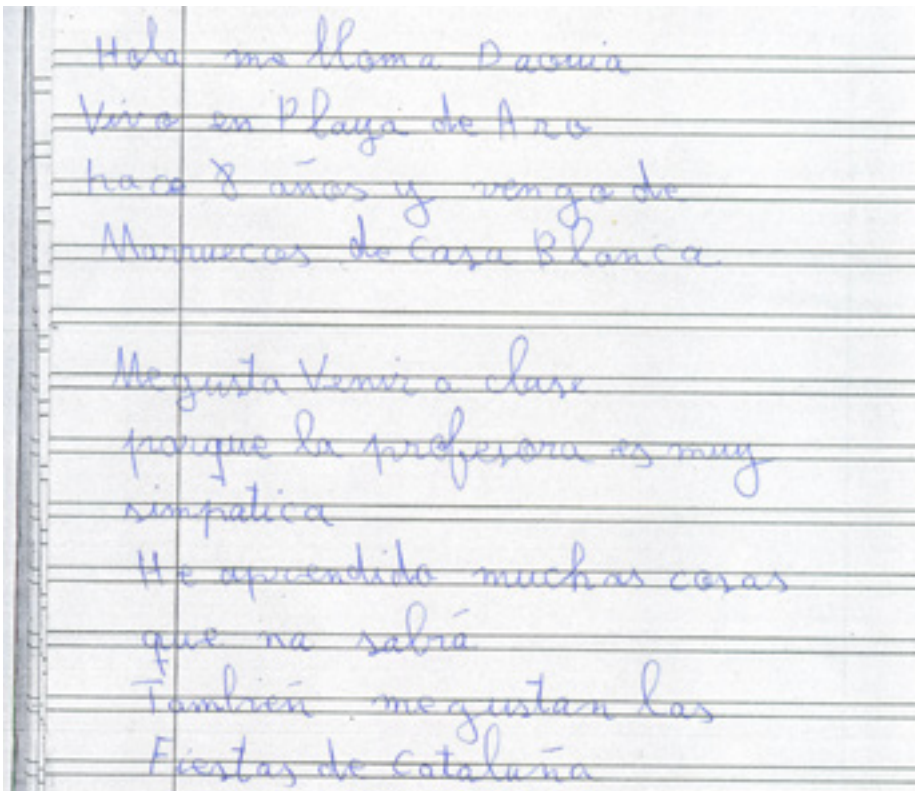 Hola me lloma Daouia
Vivo en Playa de Aro
hace 8 años y vengo de
Marruecos de casa Blanca
Megusta Venir a clase
porque la profesora es muy
simpatica
He aprendido muchas cosas
que no sabía
También megustan las
Fiestas de Cataluña